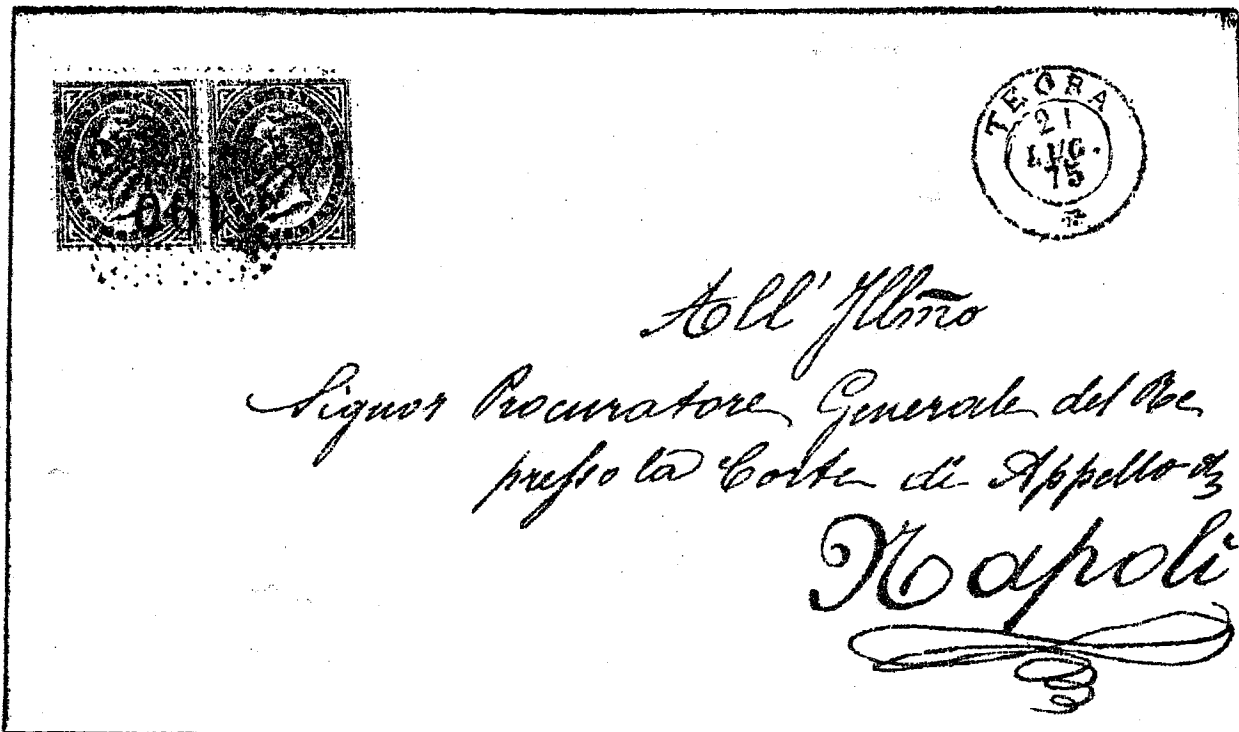 TEORA
21
LUG.
75
All' Illmo
Signor Procuratore Generale del Re
presso la Corte di Appello di
Napoli